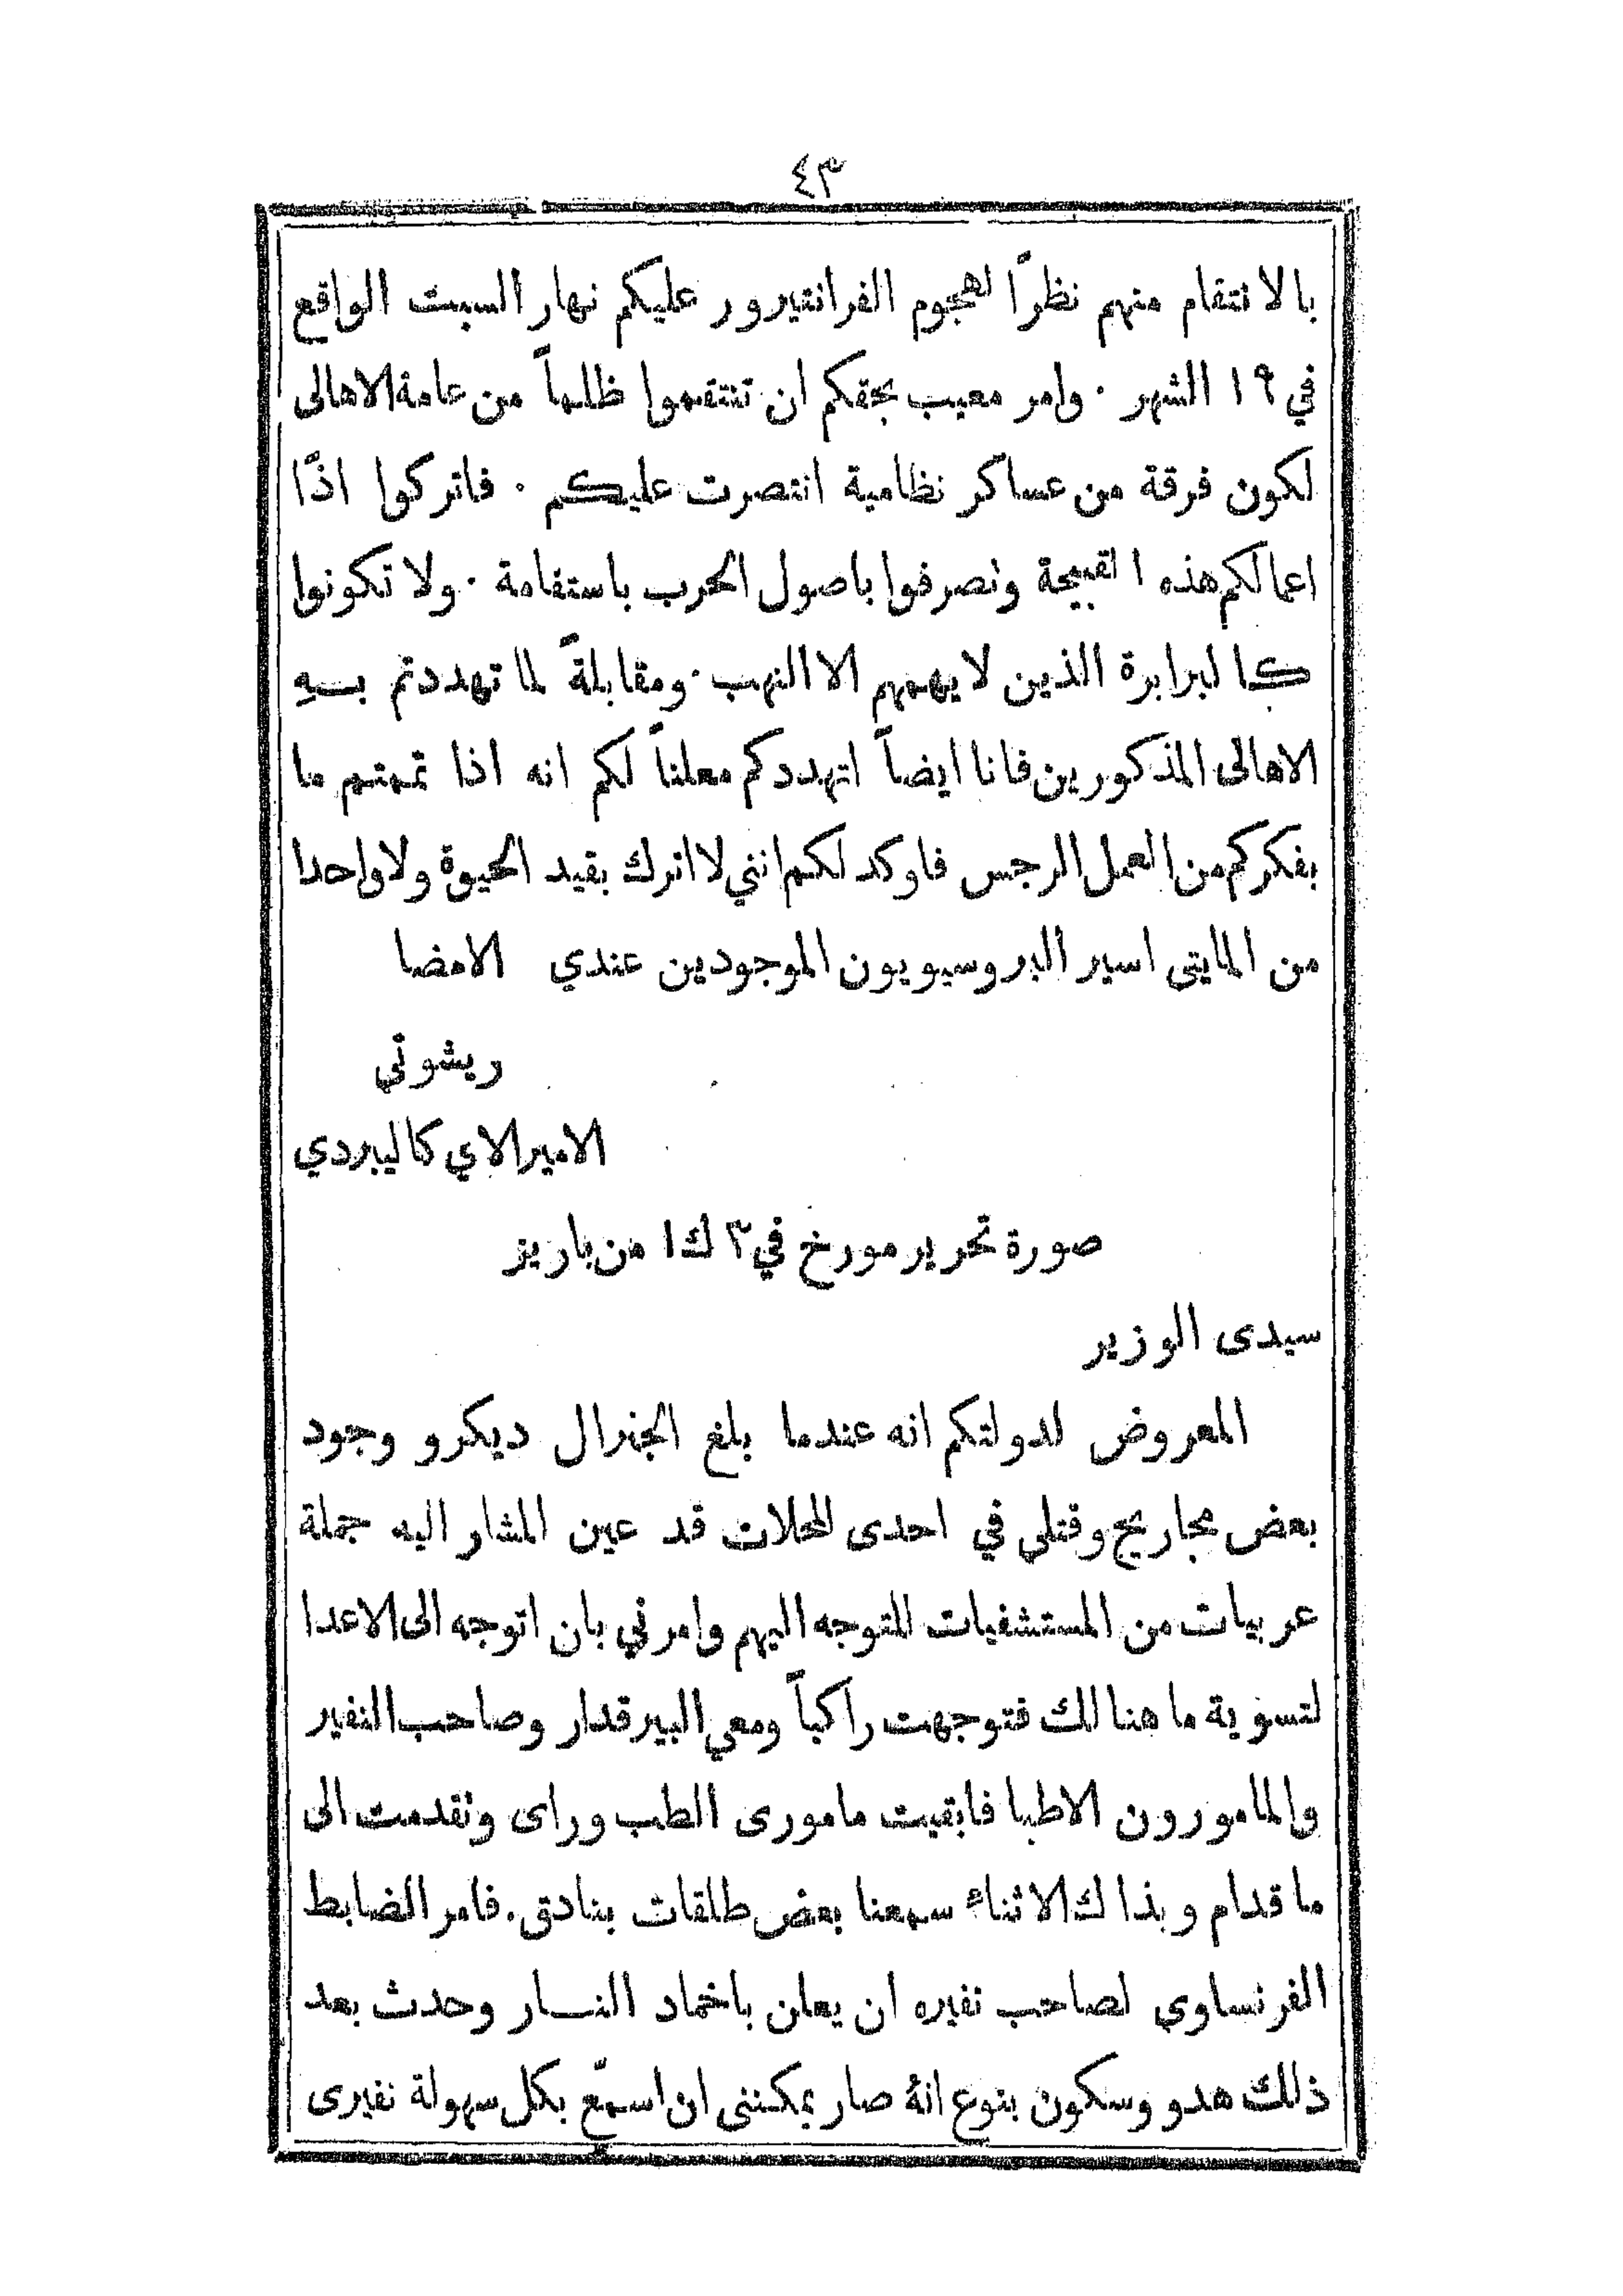 ٤٣
بالانتقام منهم نظرًا لهجوم الفرانتيرور عليكم نهار السبت الواقع
في ١٩ الشهر ٠ وامر معيب بحقكم ان تنتقموا ظلماً من عامة الاهالى
لكون فرقة من عساكر نظامية انتصرت عليكم ٠ فاتركوا اذًا
اعمالكم هذه القبيحة وتصرفوا باصول الحرب باستقامة ٠ ولا تكونوا
كالبرابرة الذين لا يهمهم الا النهب ٠ ومقابلةً لما تهددتم بـه
الاهالى المذكورين فانا ايضاً اتهددكم معلناً لكم انه اذا تممتم ما
بفكركم من العمل الرجس فاوكد لكم انني لا اترك بقيد الحيوة ولا واحدا
من المايتى اسير البروسيويون الموجودين عندي الامضا
ريشوتي
الاميرالاي كاليبردي
صورة تحرير مورخ في ٣ ك١ من باريز
سيدى الوزير
المعروض لدولتكم انه عندما بلغ الجنرال ديكرو وجود
بعض مجاريح وقتلى في احدى المحلات قد عين المشار اليه جملة
عربيات من المستشفيات للتوجه اليهم وامرني بان اتوجه الى الاعدا
لتسوية ما هنالك فتوجهت راكباً ومعي البيرقدار وصاحب النفير
والمامورون الاطبا فابقيت مامورى الطب وراى وتقدمت الى
ما قدام وبذاك الاثناء سمعنا بعض طلقات بنادق. فامر الضابط
الفرنساوي لصاحب نفيره ان يعلن باخماد النـار وحدث بعد
ذلك هدو وسكون بنوع انهُ صار يمكننى ان اسمّع بكل سهولة نفيرى